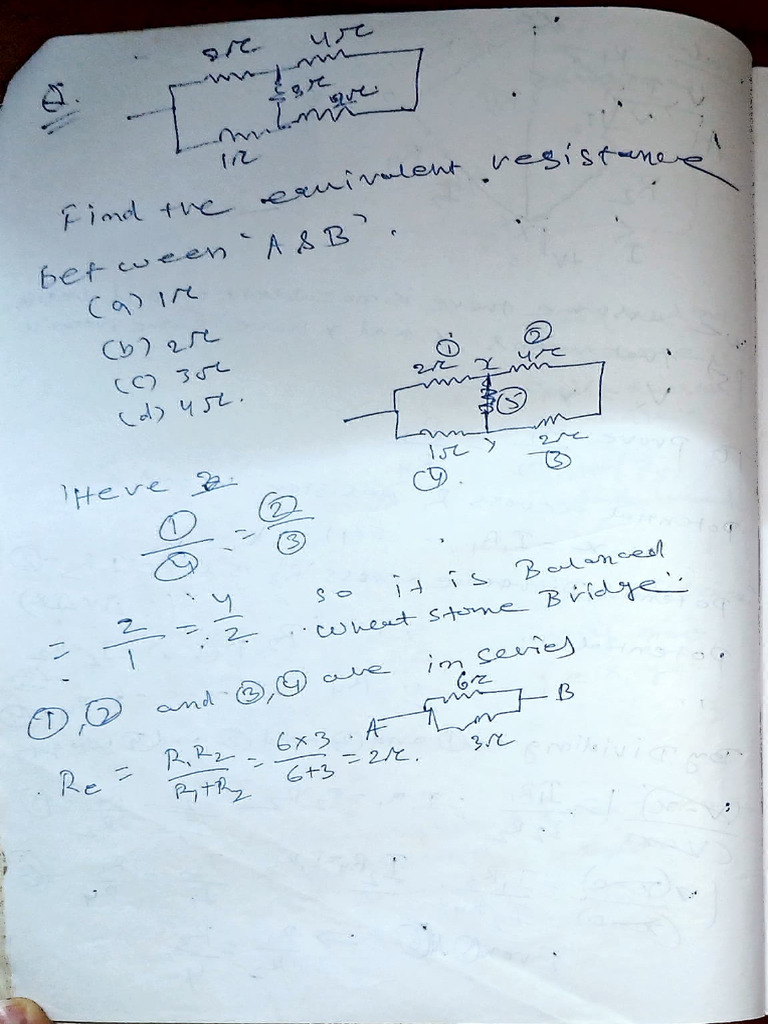 Q.
2Ω 4Ω
3Ω
2Ω
1Ω
Find the equivalent resistance
between 'A & B'.
(a) 1Ω
(b) 2Ω
(c) 3Ω
(d) 4Ω.
① ②
2Ω x 4Ω
⑤
1Ω y 2Ω
④ ③
Here
①/④ = ②/③
= 2/1 = 4/2 so it is Balanced
wheat stone Bridge
①, ② and ③, ④ are in series
6Ω
A B
3Ω
Re = R1R2/R1+R2 = 6×3/6+3 = 2Ω.